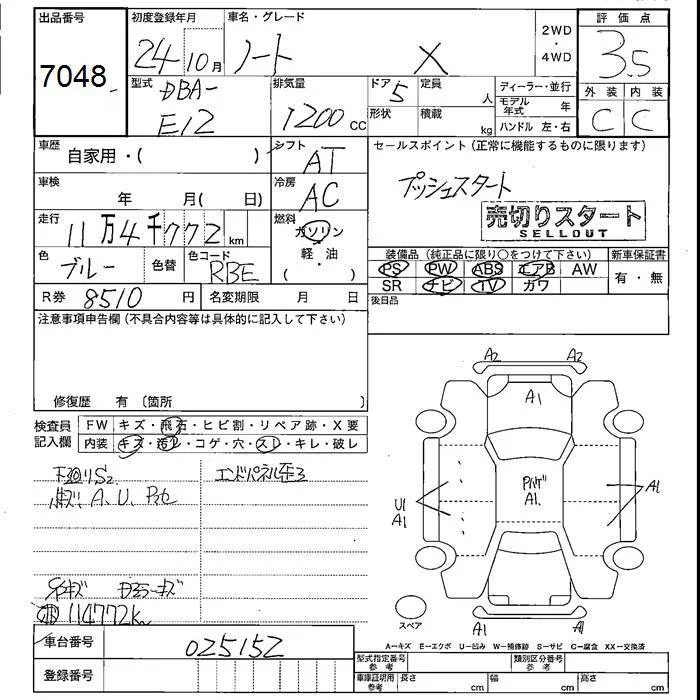 出品番号
7048
初度登録年月
24 10月
車名・グレード
ノート X
2WD
・
4WD
評価点
3.5
型式
DBA-
E12
排気量
1200cc
ドア
5
形状
定員
人
積載
kg
ディーラー・並行
モデル年式 年
ハンドル 左・右
外装 内装
C C
車歴
自家用・( )
シフト
AT
車検
年 月( 日)
冷房
AC
走行
11万4千772km
燃料
ガソリン
軽・油
( ・ )
色
ブルー
色替
色コード
RBE
R券 8510円
名変期限 月 日
セールスポイント(正常に機能するものに限ります)
プッシュスタート
売切りスタート
SELLOUT
装備品(純正品に限り○をつけて下さい)
PS PW ABS エアB AW
SR ナビ TV カワ
新車保証書
有・無
後日品
注意事項申告欄(不具合内容等は具体的に記入して下さい)
修復歴 有(箇所 )
検査員記入欄
FW キズ・飛石・ヒビ割・リペア跡・X要
内装 キズ・汚レ・コゲ・穴・スレ・キレ・破レ
下廻りS2
エンドパネル歪ろ
A、U、
114772k
A2 A2
A1
U1
A1
A1
A1
A1 A1
スペア
A=キズ E=エクボ U=凹み W=補修跡 S=サビ C=腐食 XX=交換済
車台番号
025152
登録番号
型式指定番号
参考
類別区分番号
参考
車庫証明用
参考
長さ cm
幅 cm
高さ cm